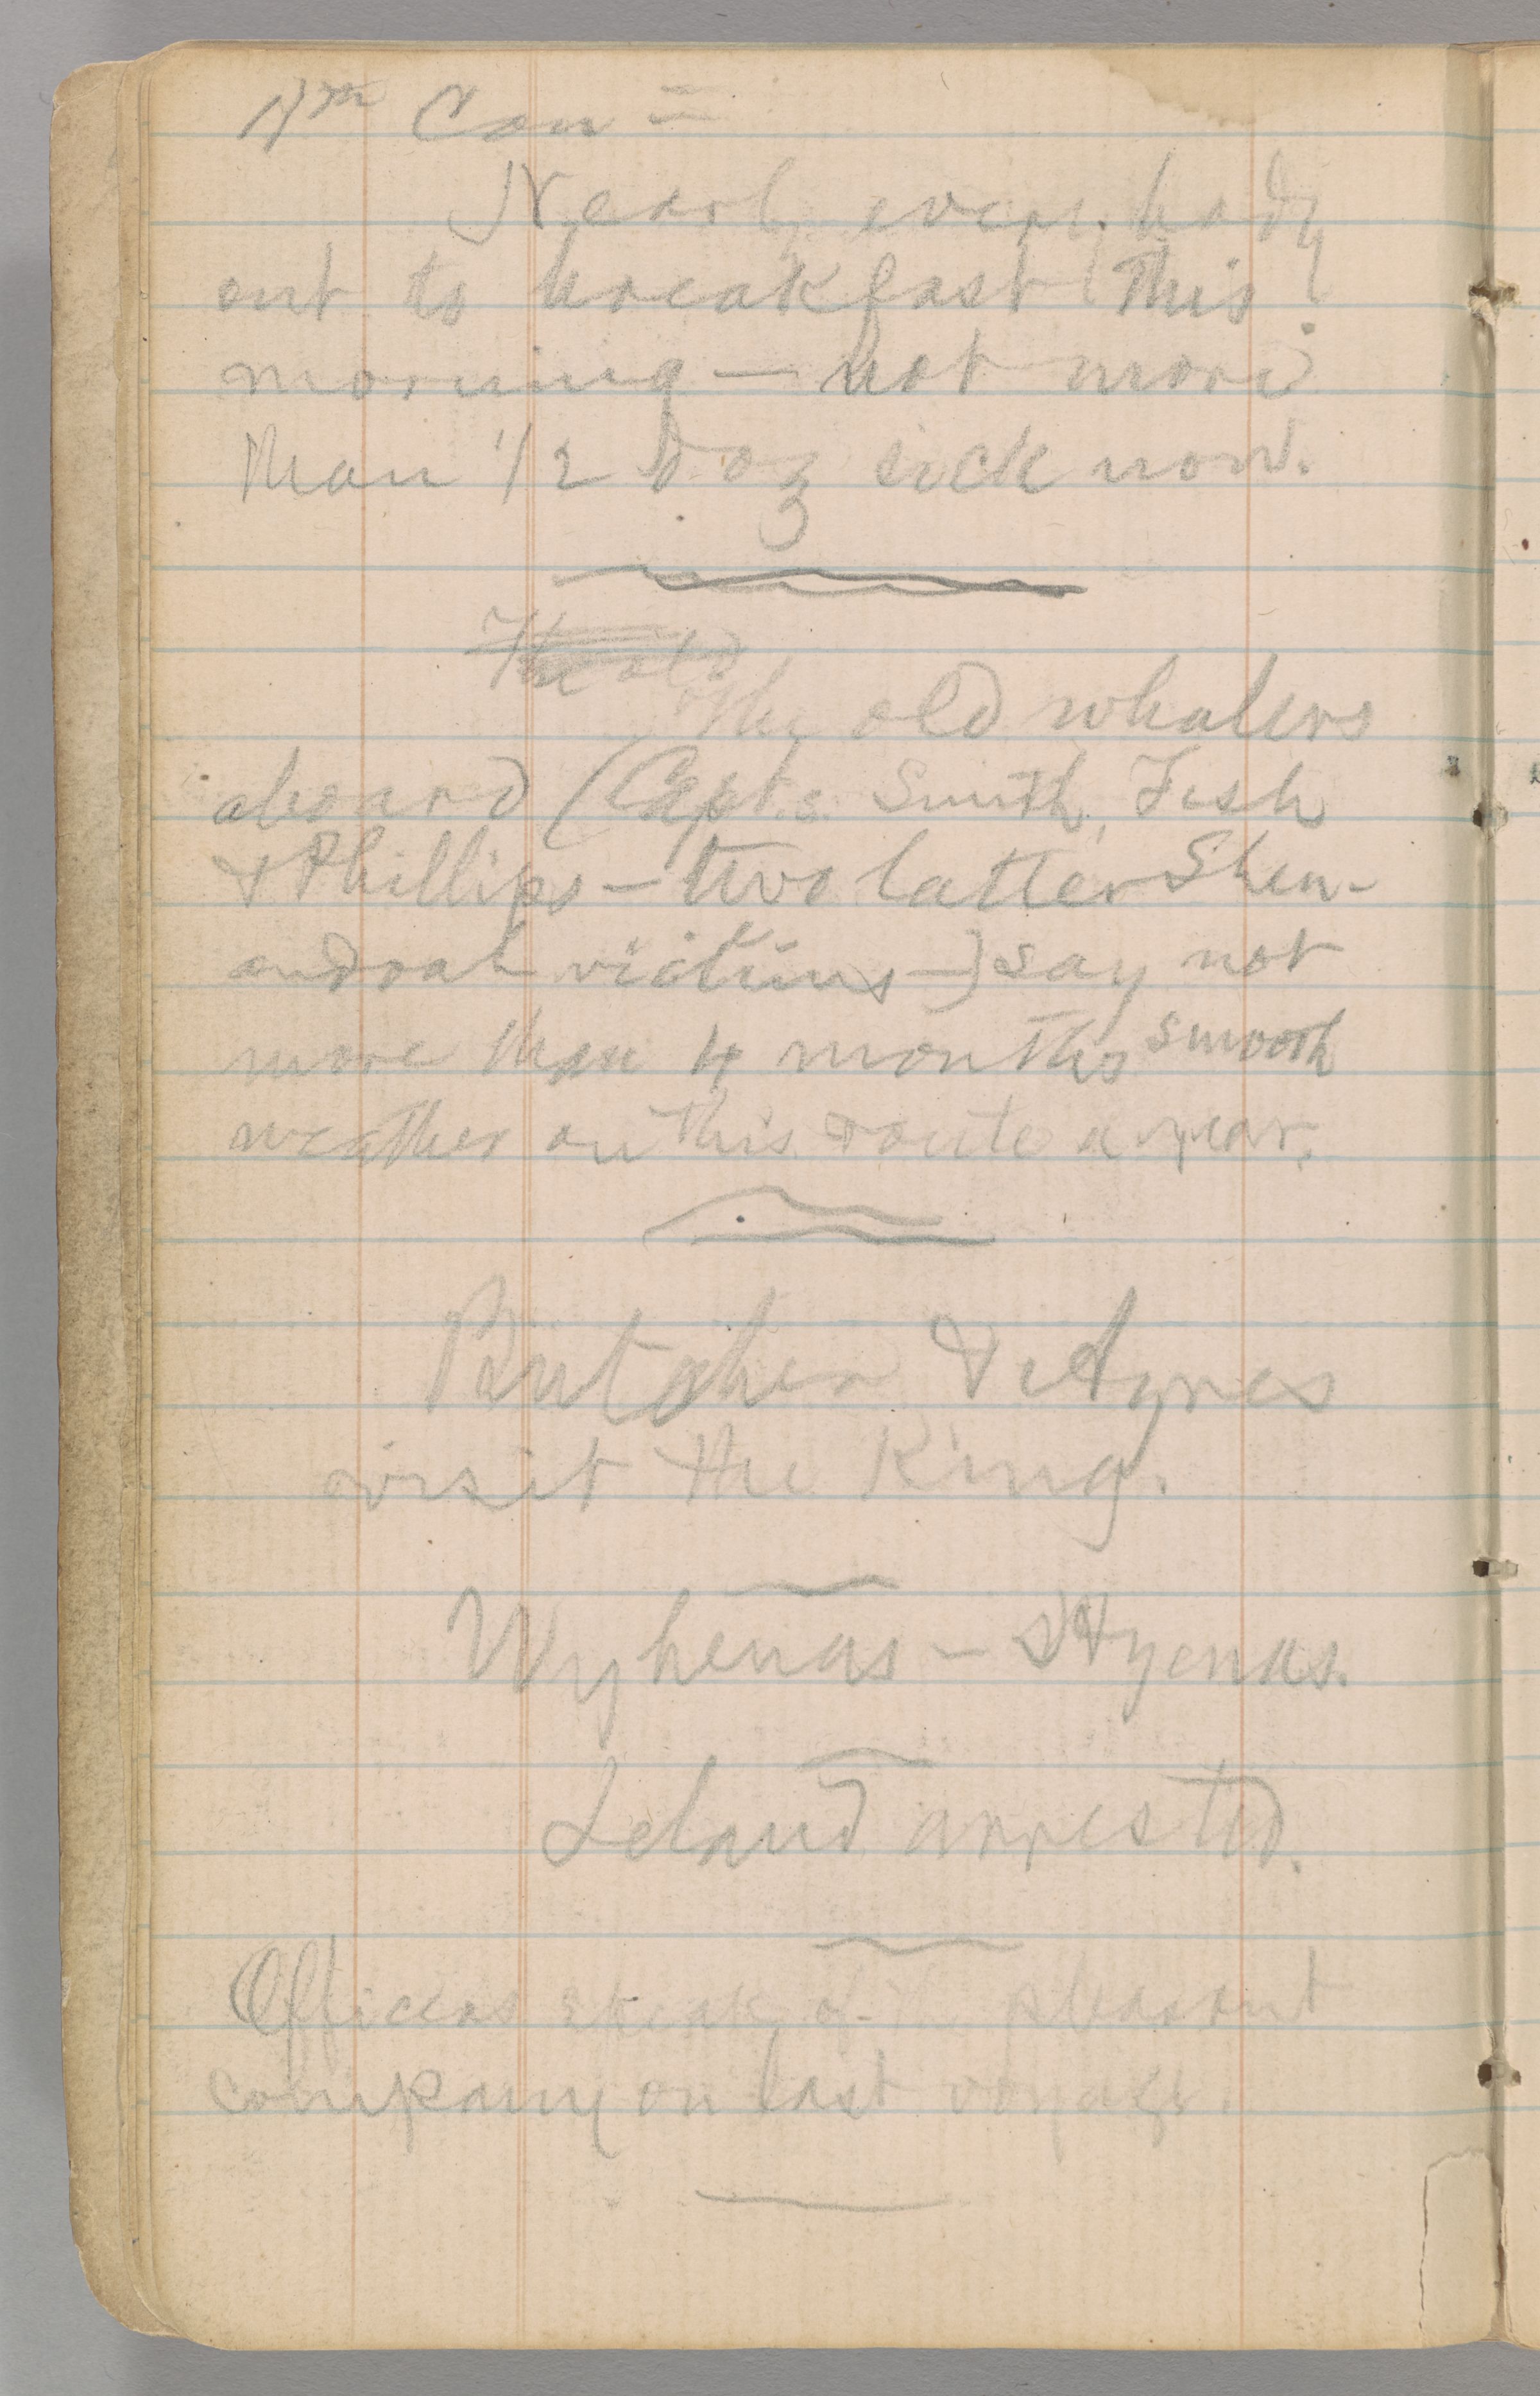 Am Con =
Nearly every body
out to breakfast this
morning — not more
than 1/2 doz sick now.
The old
The old whalers
aboard (Capts. Smith, Fish
& Phillips — two latter Shen-
andoah victims —) say not
more than 4 months smooth
weather on this route a year.
& Ayres
visit the King.
Wyhenas — Hyenas.
Leland arrested.
Officers speak of the pleasant
company on last voyage.